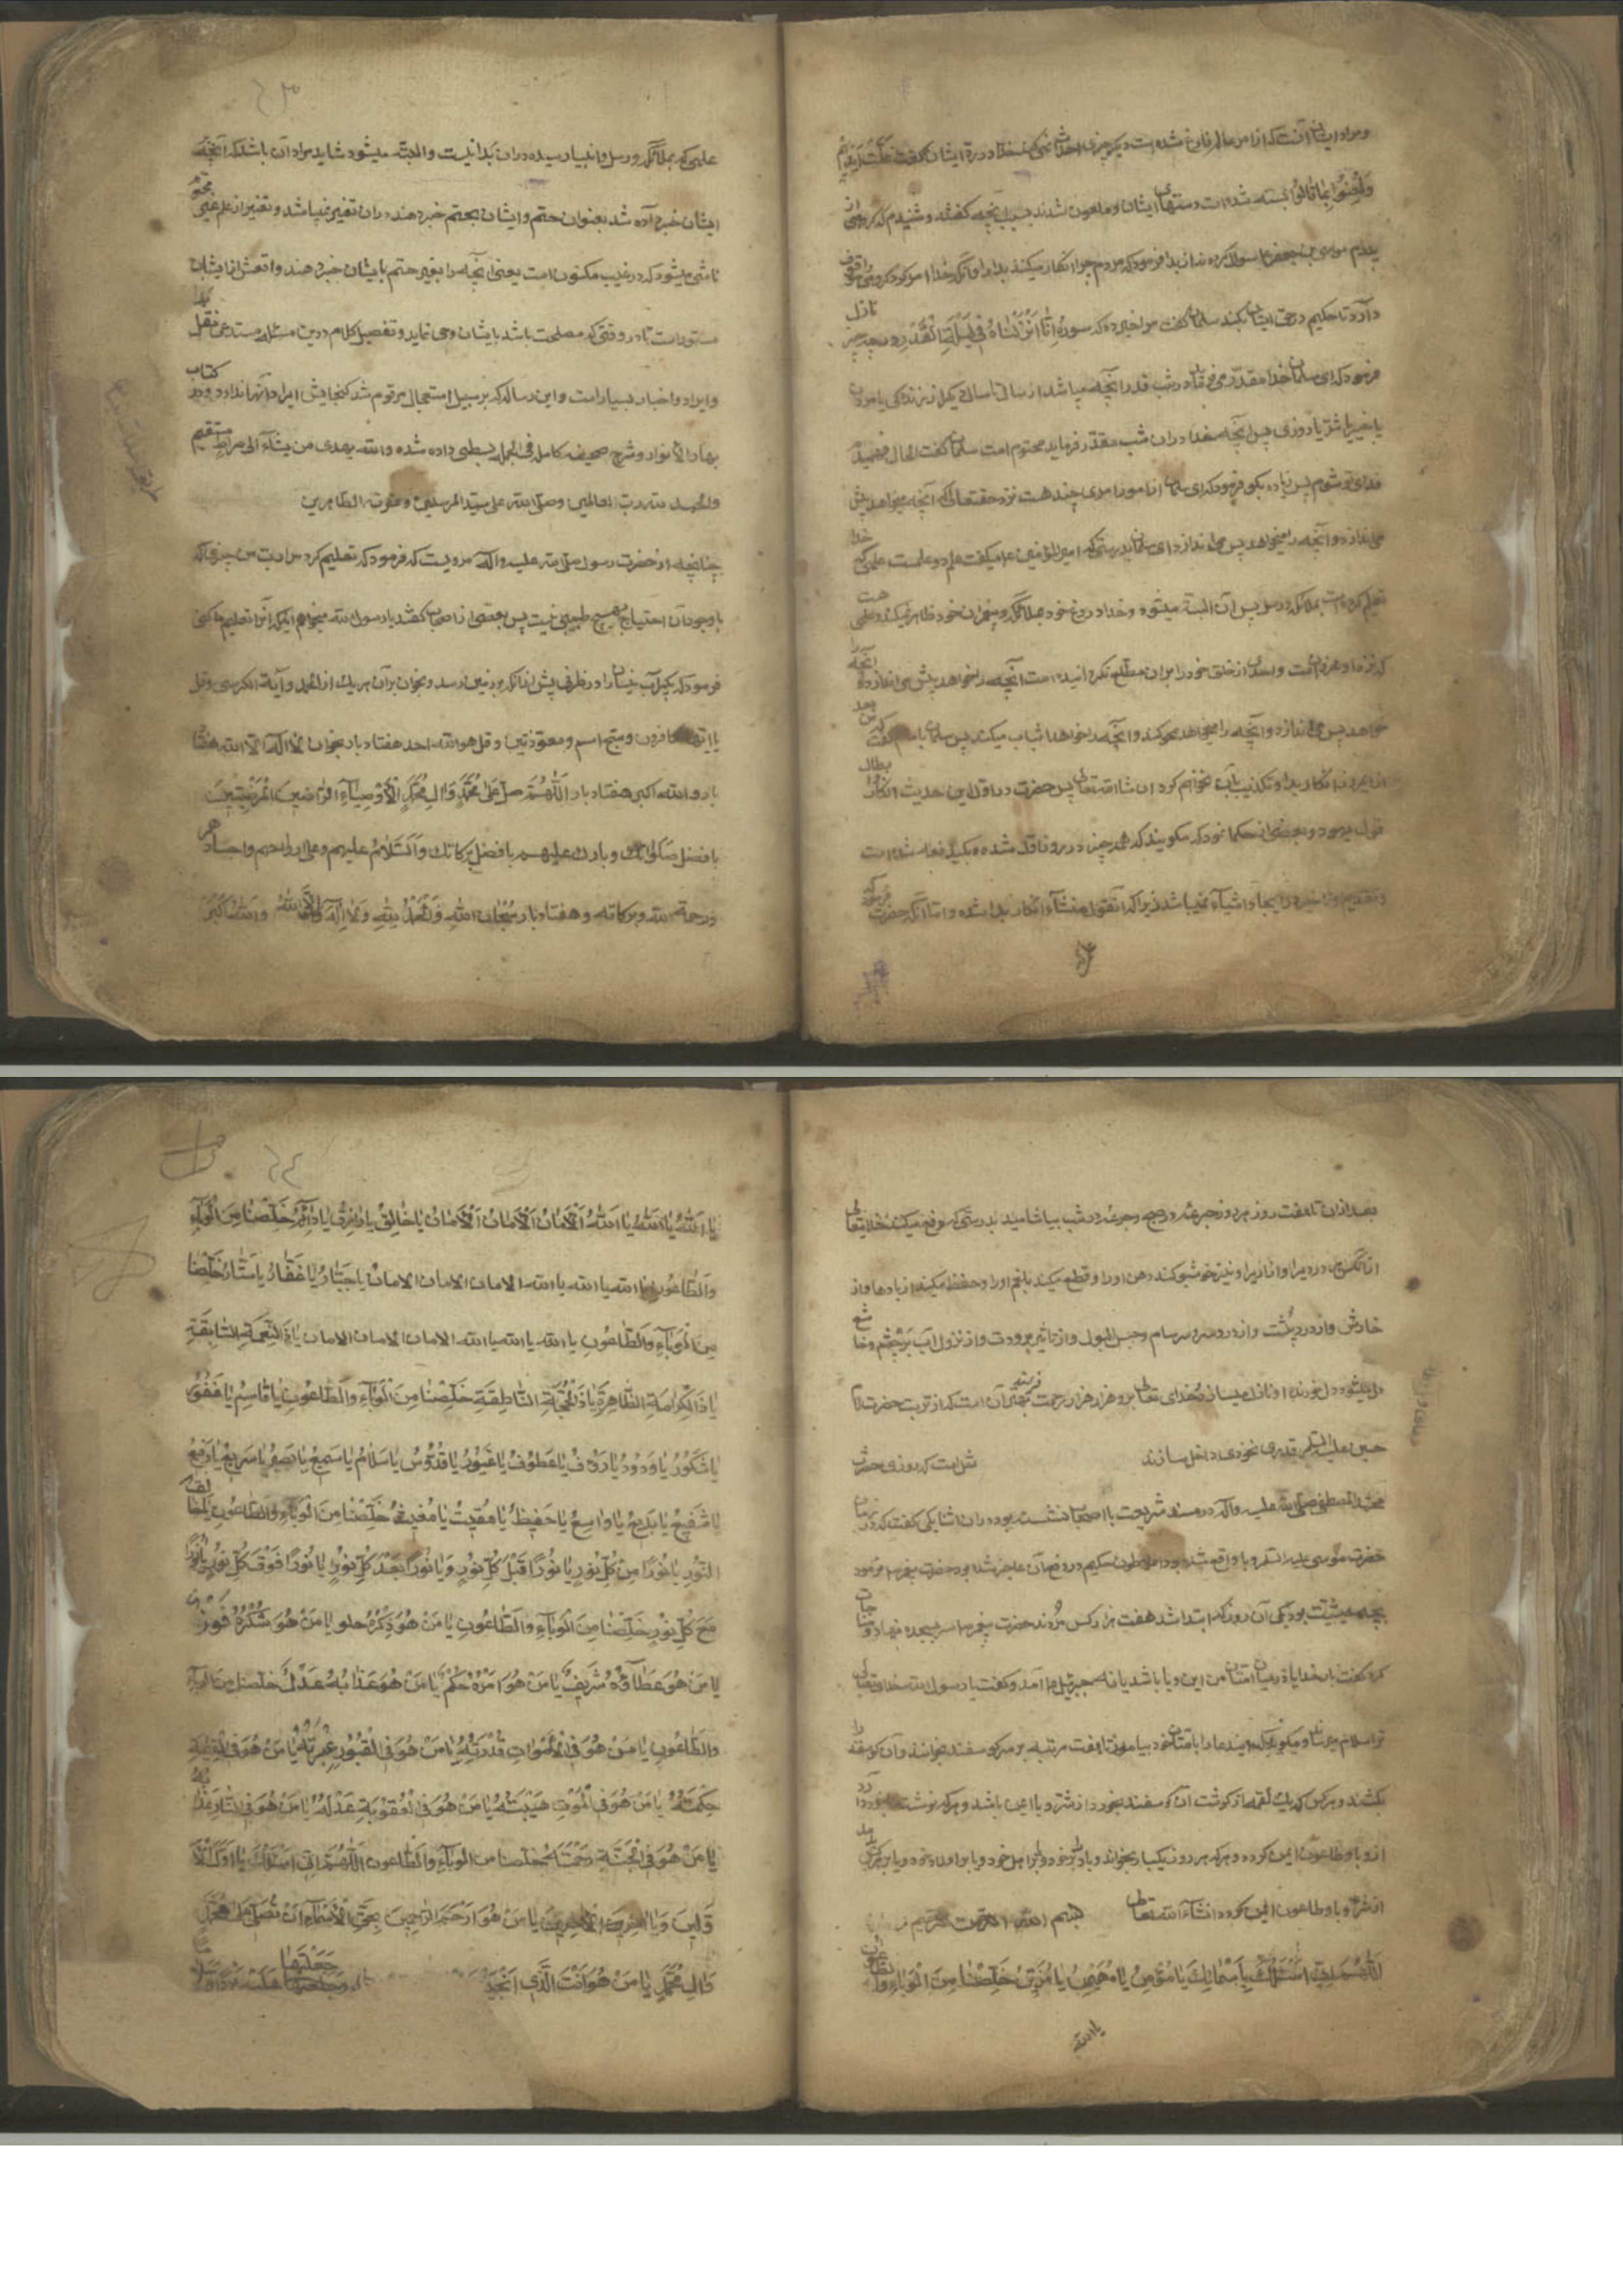 و مراد ایشان آنست که خدا از امر عالم فارغ شده است دیگر چیزی احداث نمی کند خدا در رد ایشان گفت غلت ایدیهم
ولعنوا بما قالوا بسته شده است دستهای ایشان و ملعون شدند بسبب آنچه گفتند و شنیدم که گروهی از
پدرم موسی بن جعفر سؤال کردند از بدا فرمود که مردم چرا انکار میکنند بدا را و آنکه خدا موقوف
دارد تا حکیم در حق ایشان بکند سلیمان گفت مرا خبر ده که سوره انا انزلناه فی لیلة القدر در چه چیز نازل
فرمود که ای سلیمان خدا مقدر می فرماید در شب قدر آنچه میباشد از سال تا سال دیگر از زندگی یا مردن
یا خیر یا شر یا روزی پس آنچه خدا در آن شب مقدر فرماید محتوم است سلیمان گفت الحال فهمیدم
فدای تو شوم پس زیاده بگو فرمود که ای سلیمان از امور امری چند هست نزد حقتعالی که آنچه میخواهد پیش
می اندازد و آنچه را میخواهد پس می اندازد ای سلیمان بدرستی که امیر المؤمنین ع میگفت علم دو علمست علمی که خدا
تعلیم کرده است بملائکه و رسل پس آن البته میشود و خدا دروغ خود بملائکه و پیغمبران خود ظاهر نمیکند و علمی هست
که نزد او مخزونست و احدی از خلق خود را بر آن مطلع نگردانیده است آنچه را خواهد پیش می اندازد و آنچه را
خواهد پس می اندازد و آنچه را میخواهد محو کند و آنچه را خواهد اثبات میکند پس سلیمان بمامون گفت که بعد
از این روز انکار بدا و تکذیب بآن نخواهم کرد ان شاء الله تعالی پس حضرت در اول این حدیث
قول یهود و بعضی از حکما نمود که میگویند که همه چیز در روز اول شده میگوید فعله شده است
و تقدیم و تاخیر در ایجاد اشیاء نمیباشد زیرا که آن قول منشاء انکار بدا شده و اما آنکه حضرت فرمود که
علمی که بملائکه و رسل و انبیا رسیده در آن بدا نیست و البته میشود شاید مراد آن باشد که آنچه
ایشان خبر داده شد بعنوان حتم و ایشان بحتم خبر دهند در آن تغییر نمیباشد و تغییر از علم غیبی
ناشی میشود که در غیب مکنون است یعنی آنچه را بغیر حتم بایشان خبر دهند واقعش از ایشان
مستور است تا در وقتی که مصلحت باشد بایشان وحی نماید و تفصیل کلام در این مسئله مستدعی نقل
و ایراد و اخبار بسیار است و این رساله که بر سبیل استعجال مرقوم شد گنجایش ایراد آنها ندارد و در کتاب
بحار الانوار و شرح صحیفه کامله فی الجمله بسطی داده شده و الله یهدی من یشاء الی صراط مستقیم
والحمد لله رب العالمین وصلی الله علی سید المرسلین وعترته الطاهرین
چنانچه از حضرت رسول صلی الله علیه وآله مرویست که فرمود که تعلیم کرد مرا رب من چیزی که
باوجود آن احتیاج بهیچ طبیبی نیست پس بعضی از اصحاب گفتند یا رسول الله میخواهیم که آنرا تعلیم ما کنی
فرمود که بگیرد آب نیسان را در ظرفی پیش از آنکه بزمین رسد و بخوان بر آن هر یک از الحمد و آیة الکرسی و قل
یا ایها الکافرون و سبح اسم و معوذتین و قل هو الله احد هفتاد بار بخوان لا اله الا الله هفتاد
بار و الله اکبر هفتاد بار اللهم صل علی محمد وال محمد الاوصیاء الراضین المرضیین
بافضل صلواتک وبارک علیهم بافضل برکاتک والسلام علیهم وعلی ارواحهم واجسادهم
ورحمة الله وبرکاته و هفتاد بار سبحان الله والحمد لله ولا اله الا الله والله اکبر
بعد از آن تا هفت روز هر روز جرعه در صبح و جرعه در شب بیاشامید بدرستی که رفع میکند خدایتعالی
از آنکس درد سر او را و نیز خوشبو کند دهن او را و قطع میکند بلغم او را و حفظ میکند از بادها و از
خارش و از درد پشت و از درد سر و سرسام و حبس البول و از تاثیر برودت و از نزول آب بر چشم و خاشع
دل میشود دل خورنده و نازل میسازد خدای تعالی بر او هزار هزار رحمت بهتر آن است که از تربت حضرت امام
حسین علیه السلام قدری نخودی داخل سازند نقل است که روزی حضرت
محمد المصطفی صلی الله علیه وآله در مسند شریعت با اصحاب نشسته بود در آن اثنا یکی گفت که در زمان
حضرت موسی علیه السلام وبا واقع شده بود افلاطون حکیم در دفع آن عاجز شده بود حضرت پیغمبر فرمود
بچه حیثیت بود یکی آن روز که ابتدا شد هفت هزار کس مردند حضرت پیغمبر سر بسجده نهاد و مناجات
کرد گفت بار خدایا در میان امتان من این وبا باشد یا نه جبرئیل آمد و گفت یا رسول الله خدایتعالی
ترا سلام میرساند و میگوید که این دعا را بامتان خود بیاموز تا هفت مرتبه بر سر گوسفند بخوانند و آن گوسفند را
بکشند و هر کس که یک لقمه از گوشت آن گوسفند بخورد از شر وبا ایمن باشد و هر که نوشت با خود دارد
از وبا و طاعون ایمن گردد و هر که هر روز یکبار بخواند و باد بر خود و بر اهل خود و یا بر اولاد خود و یا بر هر کس بدمد
از شر وبا و طاعون ایمن گردد انشاء الله تعالی بسم الله الرحمن الرحیم
اللهم انی اسئلک باسمائک یا مؤمن یا مهیمن یا مزین خلصنا من الوباء والطاعون
یا الله
یا الله یا الله یا الله الامان الامان الامان یا خالق یا رازق یا دائم خلصنا من الوباء
والطاعون یا الله یا الله یا الله الامان الامان الامان یا جبار یا غفار یا ستار خلصنا
من الوباء والطاعون یا الله یا الله یا الله الامان الامان الامان یا ذا النعمة السابقة
یا ذا الکرامة الظاهرة یا ذا الحجة الناطقة خلصنا من الوباء والطاعون یا قاسم یا غفور
یا شکور یا ودود یا رؤف یا عطوف یا غیور یا قدوس یا سلام یا سمیع یا بصیر یا سریع یا رفیع
یا شفیع یا بدیع یا واسع یا حفیظ یا مقیت یا مغیث خلصنا من الوباء والطاعون
النور یا نورا من کل نور یا نورا قبل کل نور ویا نورا بعد کل نور یا نورا فوق کل نور یا نورا
مع کل نور خلصنا من الوباء والطاعون یا من هو ذکره حلو یا من هو شکره فوز
یا من هو عطاؤه شریف یا من هو امره حکم یا من هو عذابه عدل خلصنا من الوباء
والطاعون یا من هو فی الاموات قدرته یا من هو فی القبور عبرته یا من هو فی القیمة
حکمته یا من هو فی الموت هیبته یا من هو فی العقوبة عدله یا من هو فی النار عذابه
یا من هو فی الجنة رحمته خلصنا من الوباء والطاعون اللهم انی اسئلک یا اول الا
ولین ویا اخر الاخرین یا من هو ارحم الراحمین بحق الاسماء ان تصلی علی محمد
وال محمد یا من هو انت الذی
جعلتها